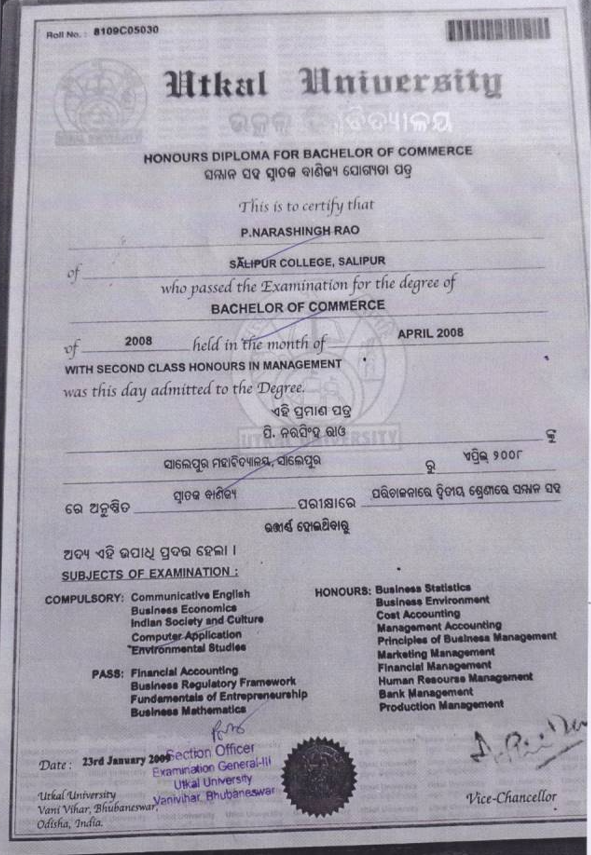 Roll No. : 8109C05030
Utkal University
ଉତ୍କଳ ବିଶ୍ୱବିଦ୍ୟାଳୟ
HONOURS DIPLOMA FOR BACHELOR OF COMMERCE
ସମ୍ମାନ ସହ ସ୍ନାତକ ବାଣିଜ୍ୟ ଯୋଗ୍ୟତା ପତ୍ର
This is to certify that
P.NARASHINGH RAO
of SALIPUR COLLEGE, SALIPUR
who passed the Examination for the degree of
BACHELOR OF COMMERCE
of 2008 held in the month of APRIL 2008
WITH SECOND CLASS HONOURS IN MANAGEMENT
was this day admitted to the Degree.
ଏହି ପ୍ରମାଣ ପତ୍ର
ପି. ନରସିଂହ ରାଓ କୁ
UTKAL UNIVERSITY
ସାଲେପୁର ମହାବିଦ୍ୟାଳୟ, ସାଲେପୁର ରୁ ଏପ୍ରିଲ୍ ୨୦୦୮
ରେ ଅନୁଷ୍ଠିତ ସ୍ନାତକ ବାଣିଜ୍ୟ ପରୀକ୍ଷାରେ ପରିଚାଳନାରେ ଦ୍ୱିତୀୟ ଶ୍ରେଣୀରେ ସମ୍ମାନ ସହ
ଉତ୍ତୀର୍ଣ୍ଣ ହୋଇଥିବାରୁ
ଅଦ୍ୟ ଏହି ଉପାଧି ପ୍ରଦତ୍ତ ହେଲା ।
SUBJECTS OF EXAMINATION :
COMPULSORY: Communicative English
Business Economics
Indian Society and Culture
Computer Application
Environmental Studies
PASS: Financial Accounting
Business Regulatory Framework
Fundamentals of Entrepreneurship
Business Mathematics
HONOURS: Business Statistics
Business Environment
Cost Accounting
Management Accounting
Principles of Business Management
Marketing Management
Financial Management
Human Resourse Management
Bank Management
Production Management
Date : 23rd January 2009
Section Officer
Examination General-III
Utkal University
Vanivihar, Bhubaneswar
Utkal University
Vani Vihar, Bhubaneswar,
Odisha, India.
Vice-Chancellor